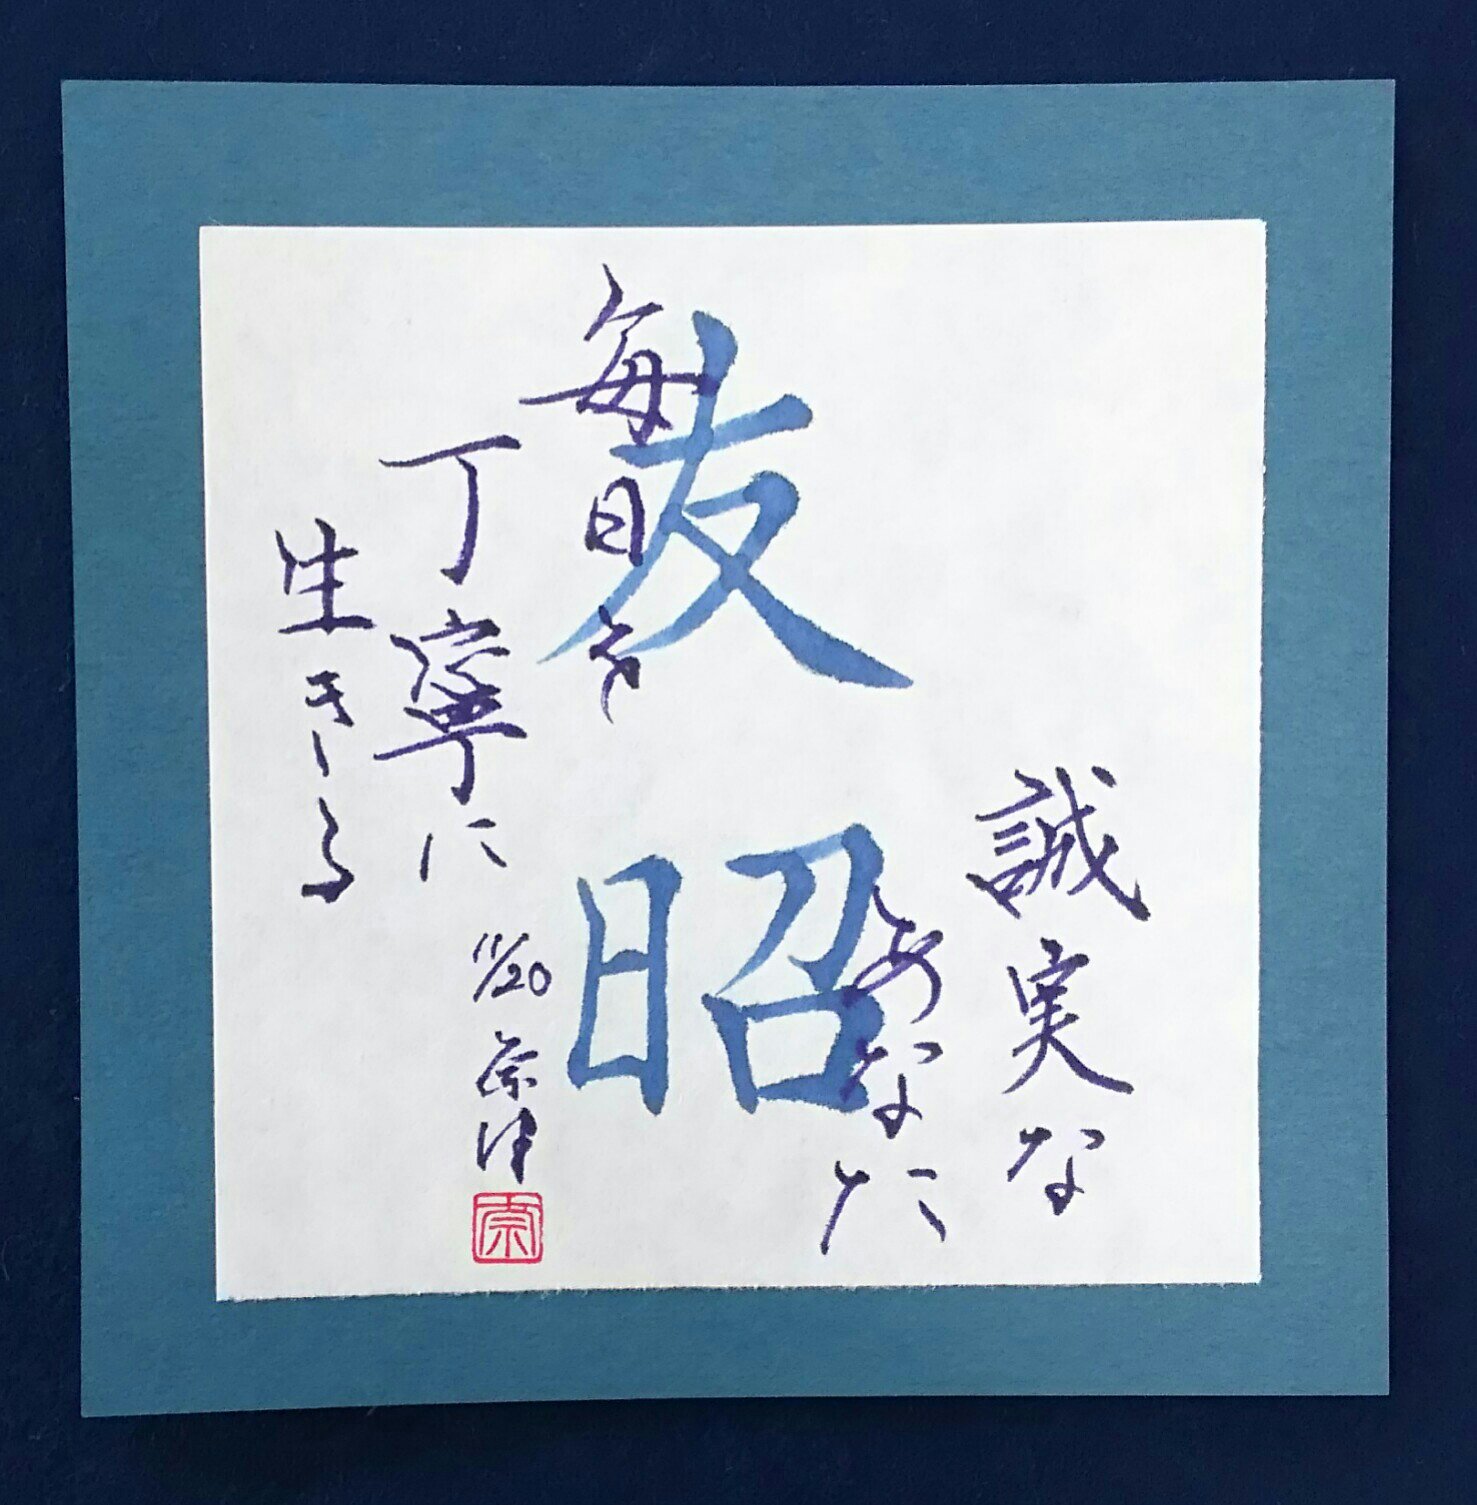 誠実な
あなた
友昭
毎日を
丁寧に
生きる
11/20 奈津
奈